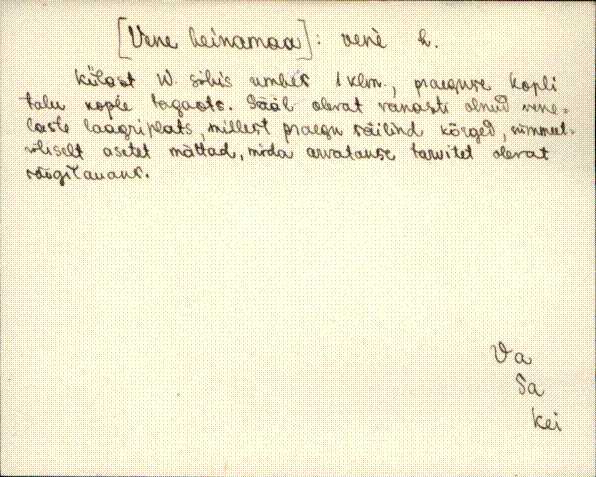 [Vene heinamaa]: venè h.
Külast W. sihis umbes 1 klm., praeguse Kopli
talu kople tagaots. Sääl olevat vanasti olnud vene-
laste laagriplats, millest praegu säilind kõrged, ümmet-
riliselt asetet mättad, mida arvatakse tarvitet olevat
söögilauaks.
Va
Sa
Kei